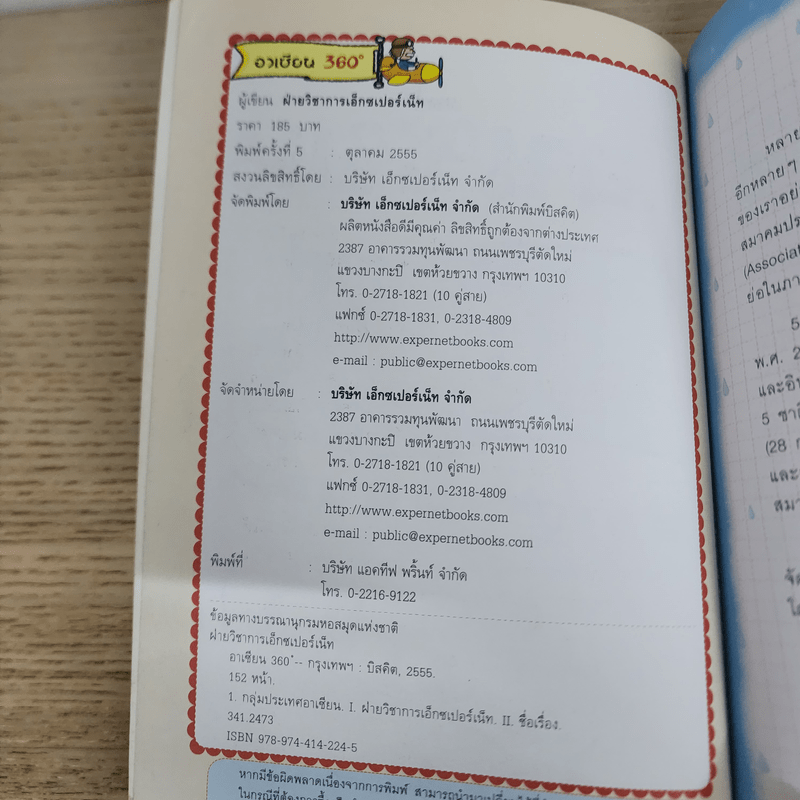 อาเซียน 360°
ผู้เขียน ฝ่ายวิชาการเอ็กซเปอร์เน็ท
ราคา 185 บาท
พิมพ์ครั้งที่ 5 : ตุลาคม 2555
สงวนลิขสิทธิ์โดย : บริษัท เอ็กซเปอร์เน็ท จำกัด
จัดพิมพ์โดย : บริษัท เอ็กซเปอร์เน็ท จำกัด (สำนักพิมพ์บิสคิต)
ผลิตหนังสือดีมีคุณค่า ลิขสิทธิ์ถูกต้องจากต่างประเทศ
2387 อาคารรวมทุนพัฒนา ถนนเพชรบุรีตัดใหม่
แขวงบางกะปิ เขตห้วยขวาง กรุงเทพฯ 10310
โทร. 0-2718-1821 (10 คู่สาย)
แฟกซ์ 0-2718-1831, 0-2318-4809
http://www.expernetbooks.com
e-mail : public@expernetbooks.com
จัดจำหน่ายโดย : บริษัท เอ็กซเปอร์เน็ท จำกัด
2387 อาคารรวมทุนพัฒนา ถนนเพชรบุรีตัดใหม่
แขวงบางกะปิ เขตห้วยขวาง กรุงเทพฯ 10310
โทร. 0-2718-1821 (10 คู่สาย)
แฟกซ์ 0-2718-1831, 0-2318-4809
http://www.expernetbooks.com
e-mail : public@expernetbooks.com
พิมพ์ที่ : บริษัท แอคทีฟ พริ้นท์ จำกัด
โทร. 0-2216-9122
ข้อมูลทางบรรณานุกรมหอสมุดแห่งชาติ
ฝ่ายวิชาการเอ็กซเปอร์เน็ท
อาเซียน 360°-- กรุงเทพฯ : บิสคิต, 2555.
152 หน้า.
1. กลุ่มประเทศอาเซียน. I. ฝ่ายวิชาการเอ็กซเปอร์เน็ท. II. ชื่อเรื่อง.
341.2473
ISBN 978-974-414-224-5
หากมีข้อผิดพลาดเนื่องจากการพิมพ์ สามารถนำมาเปลี่ยน
ในกรณีที่ต้องการ
หลาย
อีกหลายๆ
ของเราอย่
สมาคมประ
(Associat
ย่อในภา
5
พ.ศ. 2
และอิน
5 ชาติ
(28 ก
และ
สมา
จัด
โด